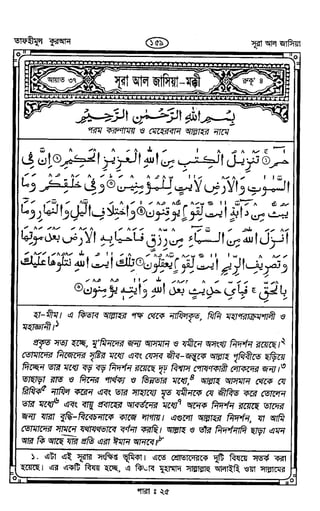 তাফহীমুল কুরআন
১৫৯
সূরা আল জাসিয়া
আয়াত ৩৭
সূরা আল জাসিয়া-মক্কী
রুকূ' ৪
بِسْمِ اللهِ الرَّحْمٰنِ الرَّحِيْمِ
পরম করুণাময় ও মেহেরবান আল্লাহর নামে
حٰمٓ ① تَنْزِيْلُ الْكِتٰبِ مِنَ اللهِ الْعَزِيْزِ الْحَكِيْمِ ② اِنَّ فِى
السَّمٰوٰتِ وَالْاَرْضِ لَاٰيٰتٍ لِّلْمُؤْمِنِيْنَ ③ وَفِىْ خَلْقِكُمْ وَمَا
يَبُثُّ مِنْ دَآبَّةٍ اٰيٰتٌ لِّقَوْمٍ يُّوْقِنُوْنَ ④ وَاخْتِلَافِ الَّيْلِ وَالنَّهَارِ وَمَآ
اَنْزَلَ اللهُ مِنَ السَّمَآءِ مِنْ رِّزْقٍ فَاَحْيَا بِهِ الْاَرْضَ بَعْدَ مَوْتِهَا
وَتَصْرِيْفِ الرِّيٰحِ اٰيٰتٌ لِّقَوْمٍ يَّعْقِلُوْنَ ⑤ تِلْكَ اٰيٰتُ اللهِ نَتْلُوْهَا عَلَيْكَ
بِالْحَقِّ ۚ فَبِاَىِّ حَدِيْثٍۢ بَعْدَ اللهِ وَاٰيٰتِهٖ يُؤْمِنُوْنَ ⑥
হা-মীম। এ কিতাব আল্লাহর পক্ষ থেকে নাযিলকৃত, যিনি মহাপরাক্রমশালী ও
মহাজ্ঞানী।১
প্রকৃত সত্য হচ্ছে, মু'মিনদের জন্য আসমান ও যমীনে অসংখ্য নিদর্শন রয়েছে।২
তোমাদের নিজেদের সৃষ্টির মধ্যে এবং যেসব জীব-জন্তুকে আল্লাহ পৃথিবীতে ছড়িয়ে
দিচ্ছেন তার মধ্যে বড় বড় নিদর্শন রয়েছে দৃঢ় বিশ্বাস পোষণকারী লোকদের জন্য।৩
তাছাড়া রাত ও দিনের পার্থক্য ও ভিন্নতার মধ্যে,৪ আল্লাহ আসমান থেকে যে
রিযিক৫ নাযিল করেন এবং তার সাহায্যে মৃত যমীনকে যে জীবিত করে তোলেন
তার মধ্যে৬ এবং বায়ু প্রবাহের আবর্তনের মধ্যে৭ অনেক নিদর্শন রয়েছে তাদের
জন্য যারা বুদ্ধি-বিবেচনাকে কাজে লাগায়। এগুলো আল্লাহর নিদর্শন, যা আমি
তোমাদের সামনে যথাযথভাবে বর্ণনা করছি। আল্লাহ ও তাঁর নিদর্শনাদি ছাড়া এমন
আর কি আছে যার প্রতি এরা ঈমান আনবে।৮
১. এটা এই সূরার সংক্ষিপ্ত ভূমিকা। এতে শ্রোতাদেরকে দুটি বিষয়ে সতর্ক করা
হয়েছে। এর একটি বিষয় হচ্ছে, এ কিতাব মুহাম্মাদ সাল্লাল্লাহু আলাইহি ওয়া সাল্লামের
পারা : ২৫